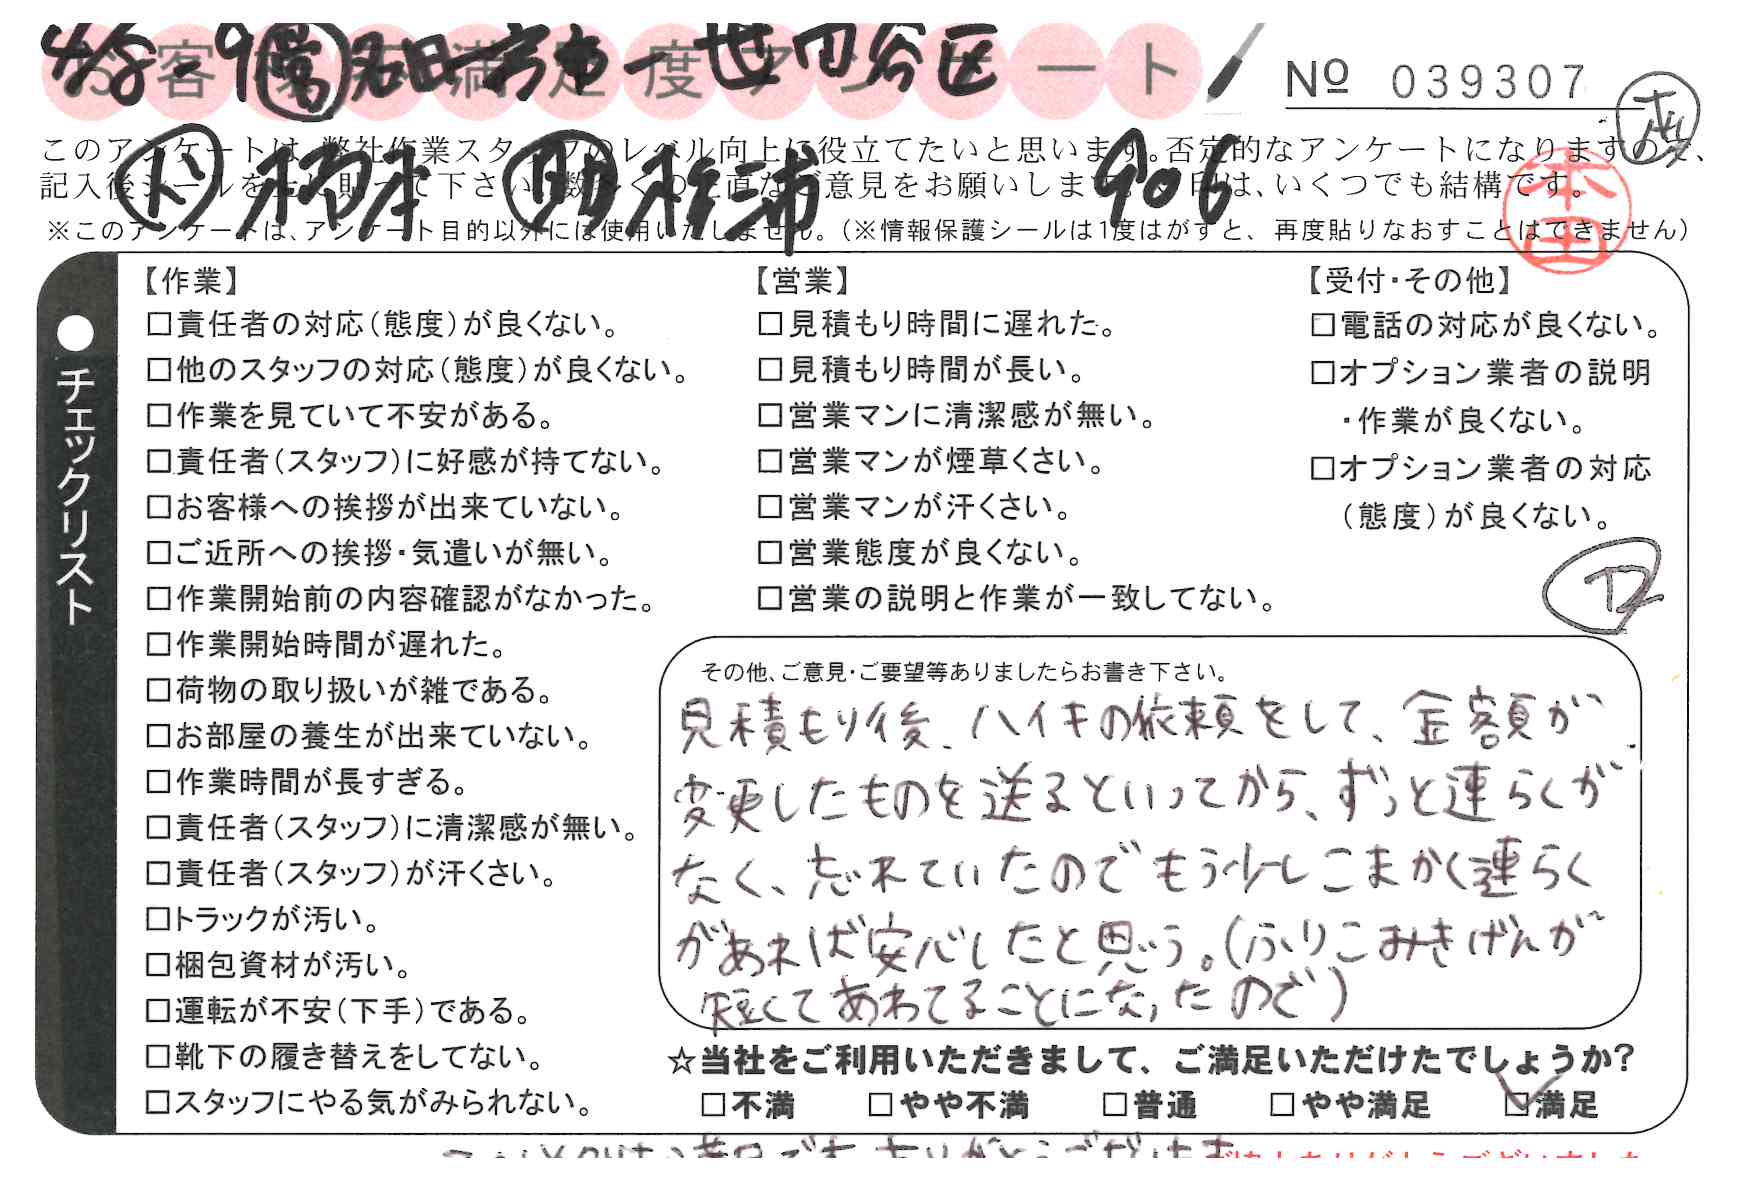 お客様不満足度アンケート
4/8-9 営 名田 市-世田谷区
№ 039307
このアンケートは、弊社作業スタッフのレベル向上に役立てたいと思います。否定的なアンケートになりますので、
記入後シールを上に貼って下さい。数多くの正直なご意見をお願いします。 印は、いくつでも結構です。
ド 柳本 助 杉浦 906
本田
※このアンケートは、アンケート目的以外には使用いたしません。(※情報保護シールは1度はがすと、再度貼りなおすことはできません)
●チェックリスト
【作業】
□責任者の対応(態度)が良くない。
□他のスタッフの対応(態度)が良くない。
□作業を見ていて不安がある。
□責任者(スタッフ)に好感が持てない。
□お客様への挨拶が出来ていない。
□ご近所への挨拶・気遣いが無い。
□作業開始前の内容確認がなかった。
□作業開始時間が遅れた。
□荷物の取り扱いが雑である。
□お部屋の養生が出来ていない。
□作業時間が長すぎる。
□責任者(スタッフ)に清潔感が無い。
□責任者(スタッフ)が汗くさい。
□トラックが汚い。
□梱包資材が汚い。
□運転が不安(下手)である。
□靴下の履き替えをしてない。
□スタッフにやる気がみられない。
【営業】
□見積もり時間に遅れた。
□見積もり時間が長い。
□営業マンに清潔感が無い。
□営業マンが煙草くさい。
□営業マンが汗くさい。
□営業態度が良くない。
□営業の説明と作業が一致してない。
【受付・その他】
□電話の対応が良くない。
□オプション業者の説明
・作業が良くない。
□オプション業者の対応
(態度)が良くない。
その他、ご意見・ご要望等ありましたらお書き下さい。
見積もり後、ハイキの依頼をして、金額が
変更したものを送るといってから、ずっと連らくが
なく、忘れていたのでもう少しこまかく連らく
があれば安心したと思う。(ふりこみきげんが
短くてあわてることになったので)
☆当社をご利用いただきまして、ご満足いただけたでしょうか?
□不満 □やや不満 □普通 □やや満足 ☑満足